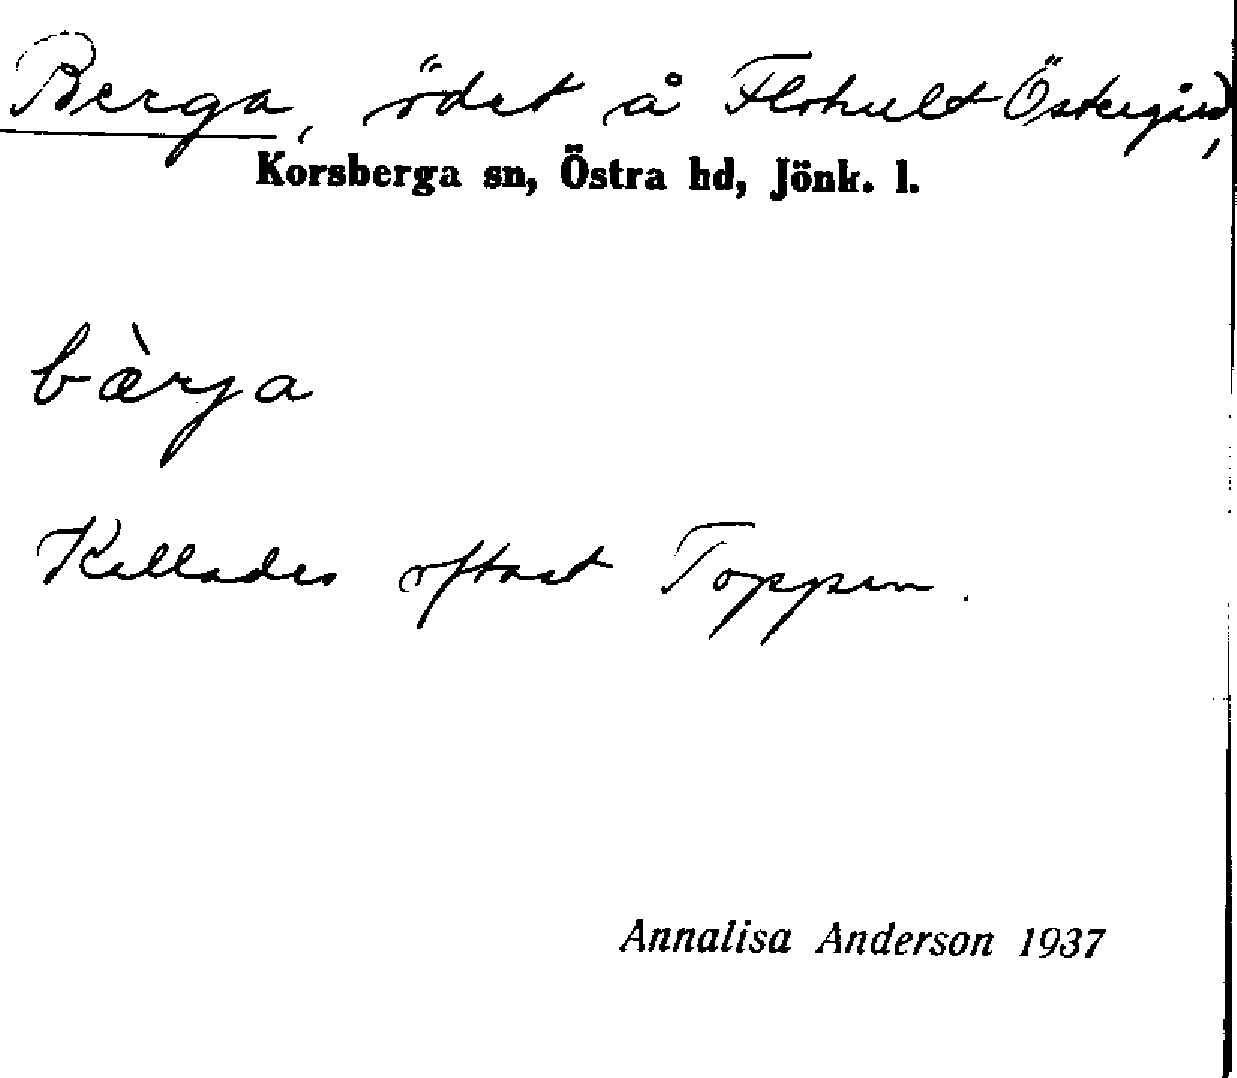 Berga, ödet å Flohult Östergård,
Korsberga sn, Östra hd, Jönk. l.
bæ̀rja
Kallades oftast Toppen.
Annalisa Anderson 1937